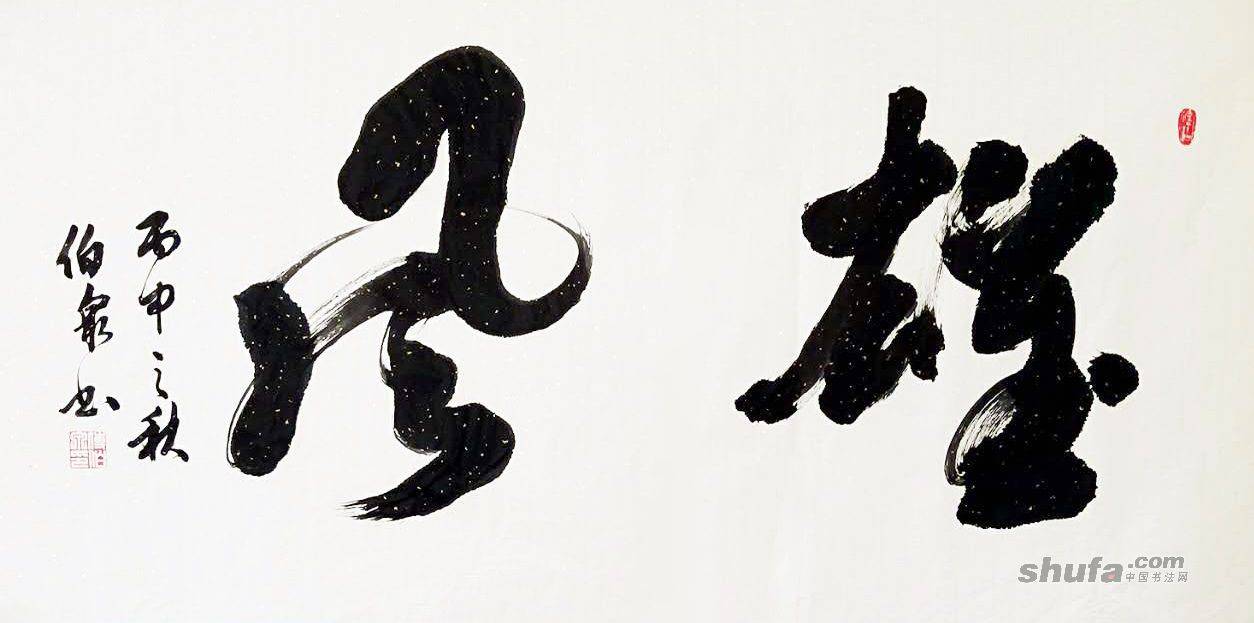 雄风
丙申之秋
伯泉书
shufa.com
中国书法网